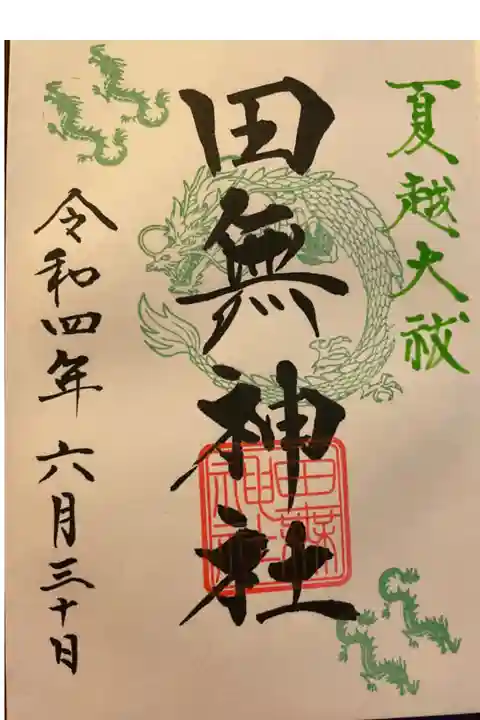 夏越大祓
田無神社
田無神社
令和四年 六月三十日